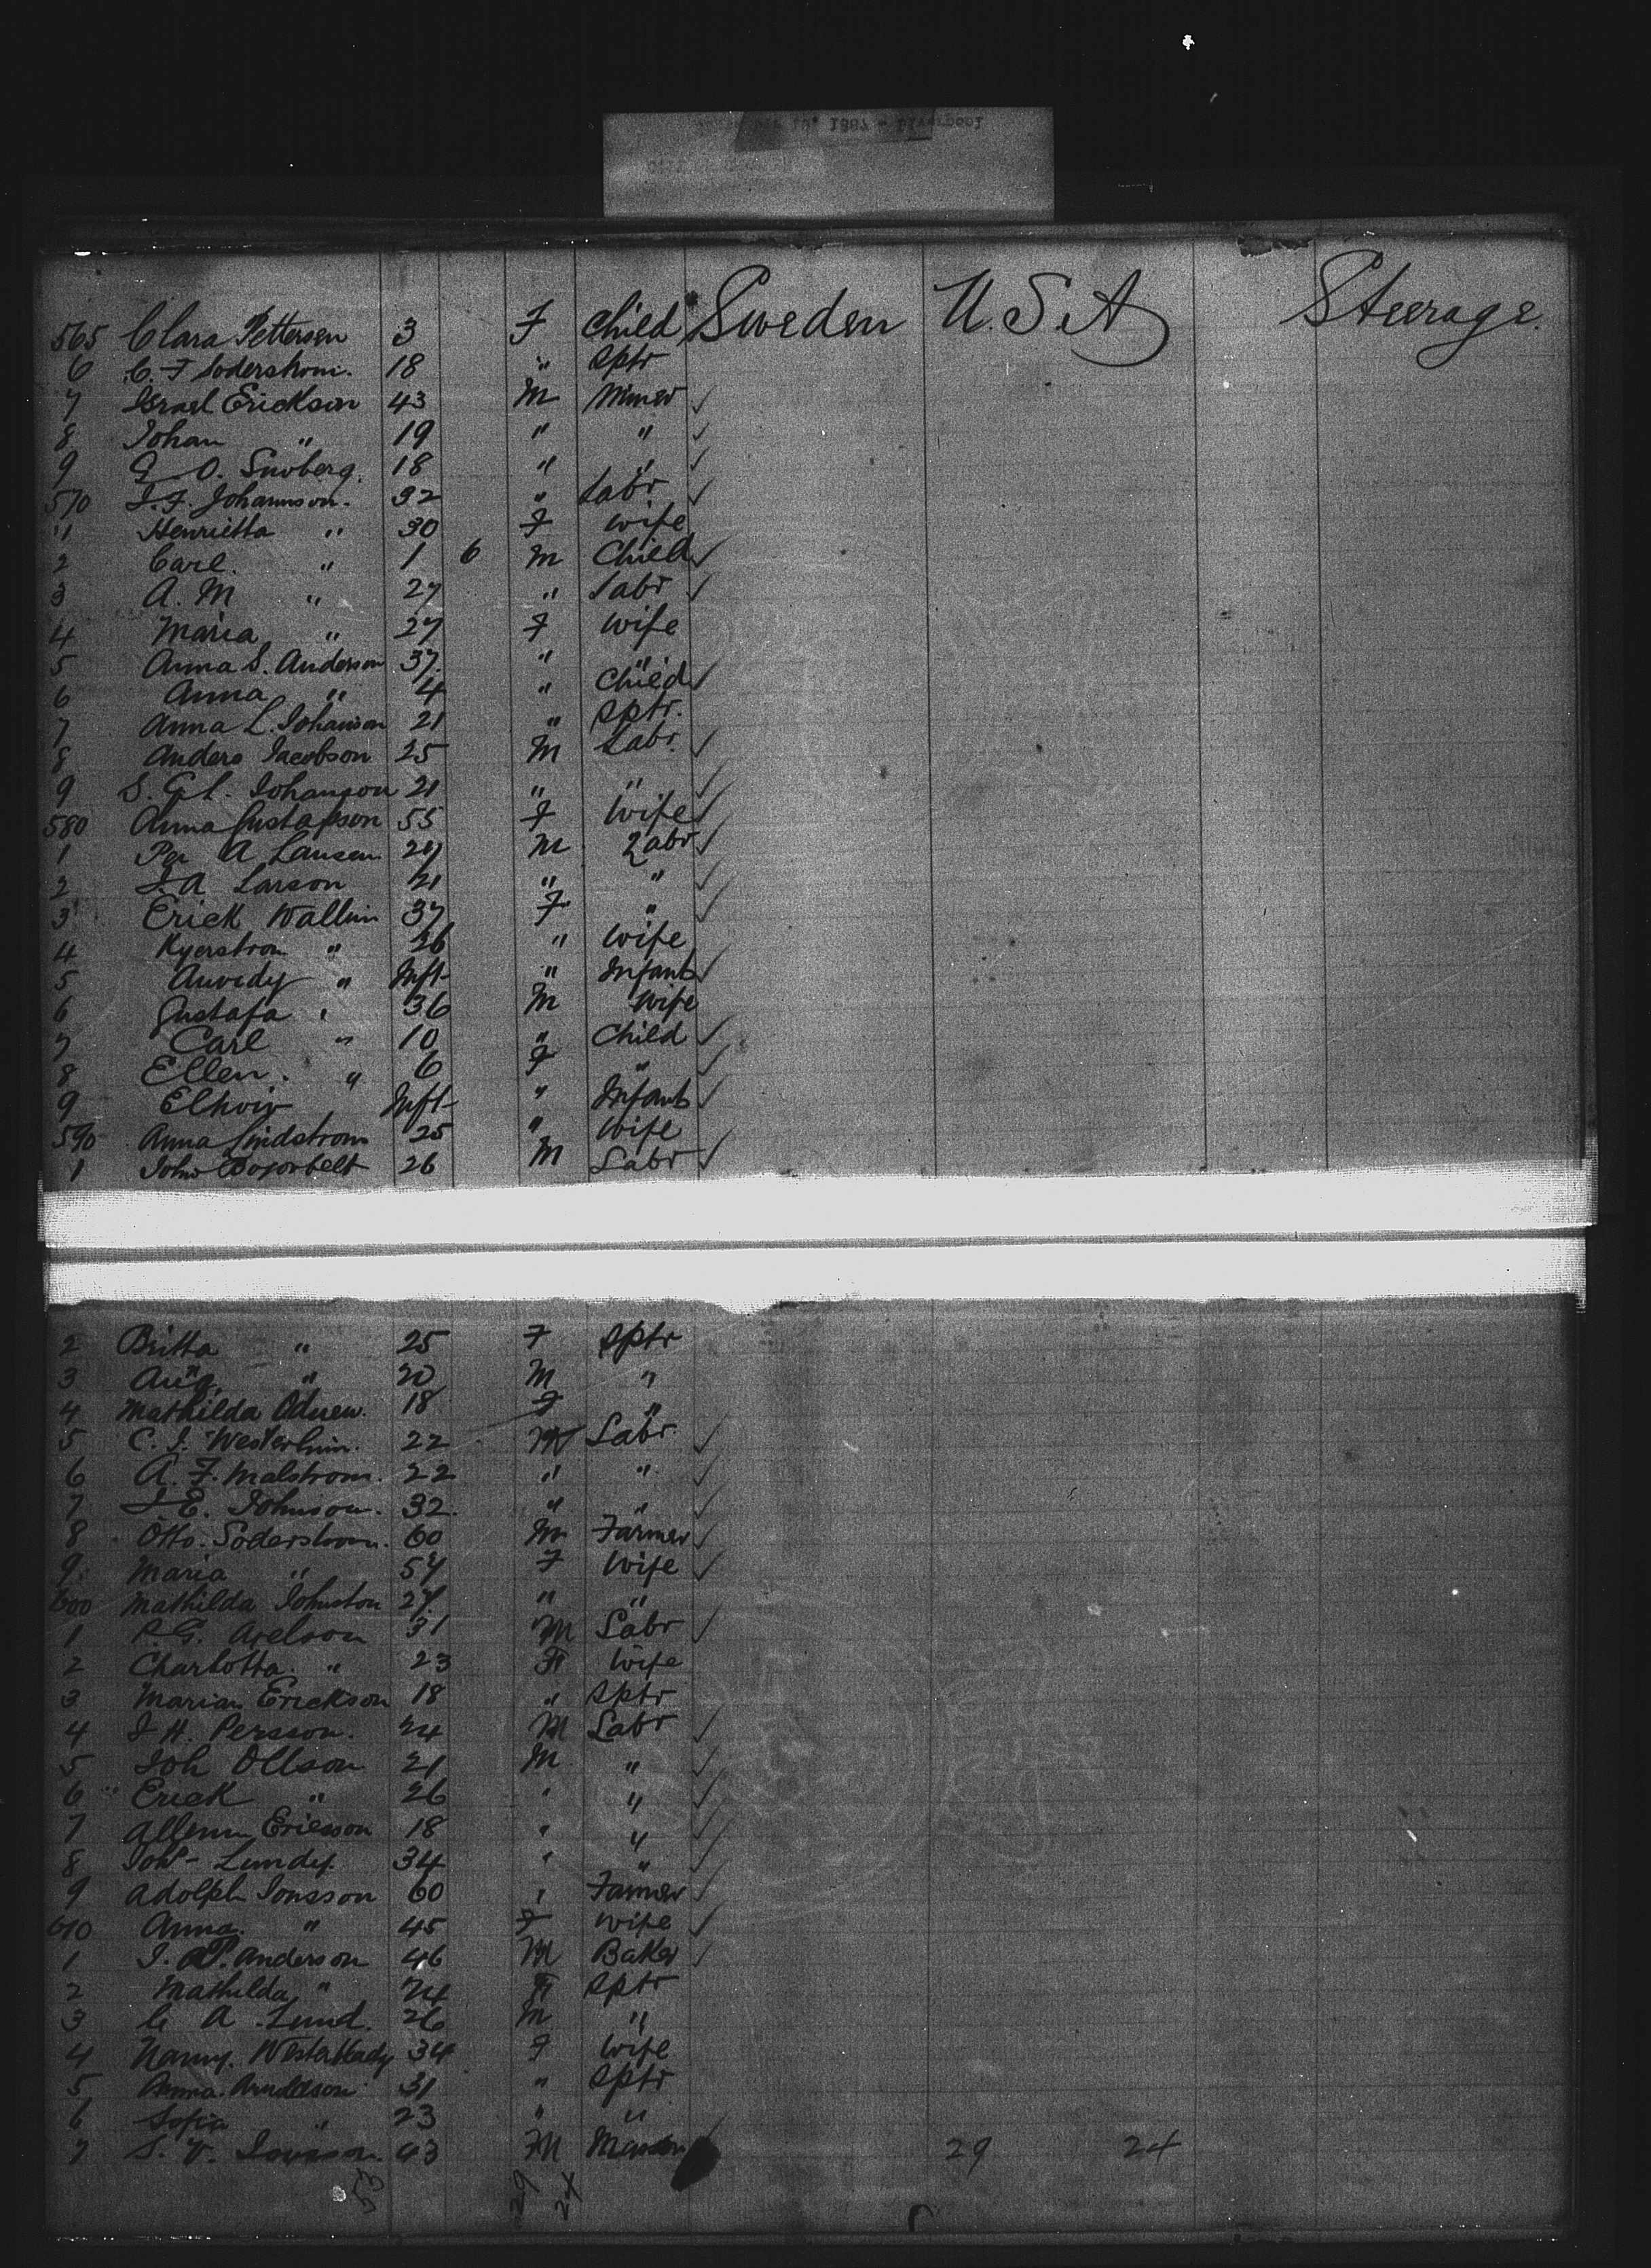 1887 - Liverpool
565 Clara Pettersen 3 F Child Sweden U.S.A Steerage.
6 C. F Soderstrom. 18 " Sptr
7 Israel Erickson 43 M Miner
8 Johan " 19 " "
9 G. O. 18 " "
570 J. F. Johannson. 32 " Labr
11 Henrietta " 30 F Wife
2 Carl. " 1 6 M Child
3 A. M " 27 " Labr
4 Maria " 27 F Wife
5 Anna S. Anderson 37. " "
6 Anna " 4 " Child
7 Anna L. Johanson 21 " Sptr.
8 Anders Jacobson 25 M Labr.
9 S. Johanson 21 " "
580 Anna Gustafson 55 F Wife
1 Per A Lausen 27 M Labr
2 J. A Larson 21 " "
3 Erick Wallin 37 F "
4 " 26 " Wife
5 " Inft " Infant
6 Gustafa " 36 M Wife
7 Carl " 10 " Child
8 Ellen. " 6 F "
9 Inft " Infant
590 Anna Lindstrom 25 " Wife
1 John 26 M Labr
2 Britta " 25 F Sptr
3 Aug. " 20 M "
4 Mathilda 18 F "
5 C. J. 22 M Labr
6 A. F. Malstrom. 22 " "
7 J E. Johnson. 32. " "
8 Otto. Soderstrom. 60 M Farmer
9 Maria " 57 F Wife
600 Mathilda Johnston 27 " "
1 P. G. Axelson 31 M Labr
2 Charlotta. " 23 F Wife
3 Marian Erickson 18 " Sptr
4 J H. Persson. 24 M Labr
5 Joh Ollson 21 M "
6 Erick " 26 " "
7 Ericsson 18 " "
8 Joh - 34 " "
9 Adolph Jonsson 60 " Farmer
610 Anna. " 45 F Wife
1 J. A P. Anderson 46 M Baker
2 Mathilda " 24 F Sptr
3 C A. Lund. 26 M "
4 34 F Wife
5 Anna. 31 " Sptr
6 Sofia " 23 " "
7 S. V. 43 M Mason 29 24
53 29 24